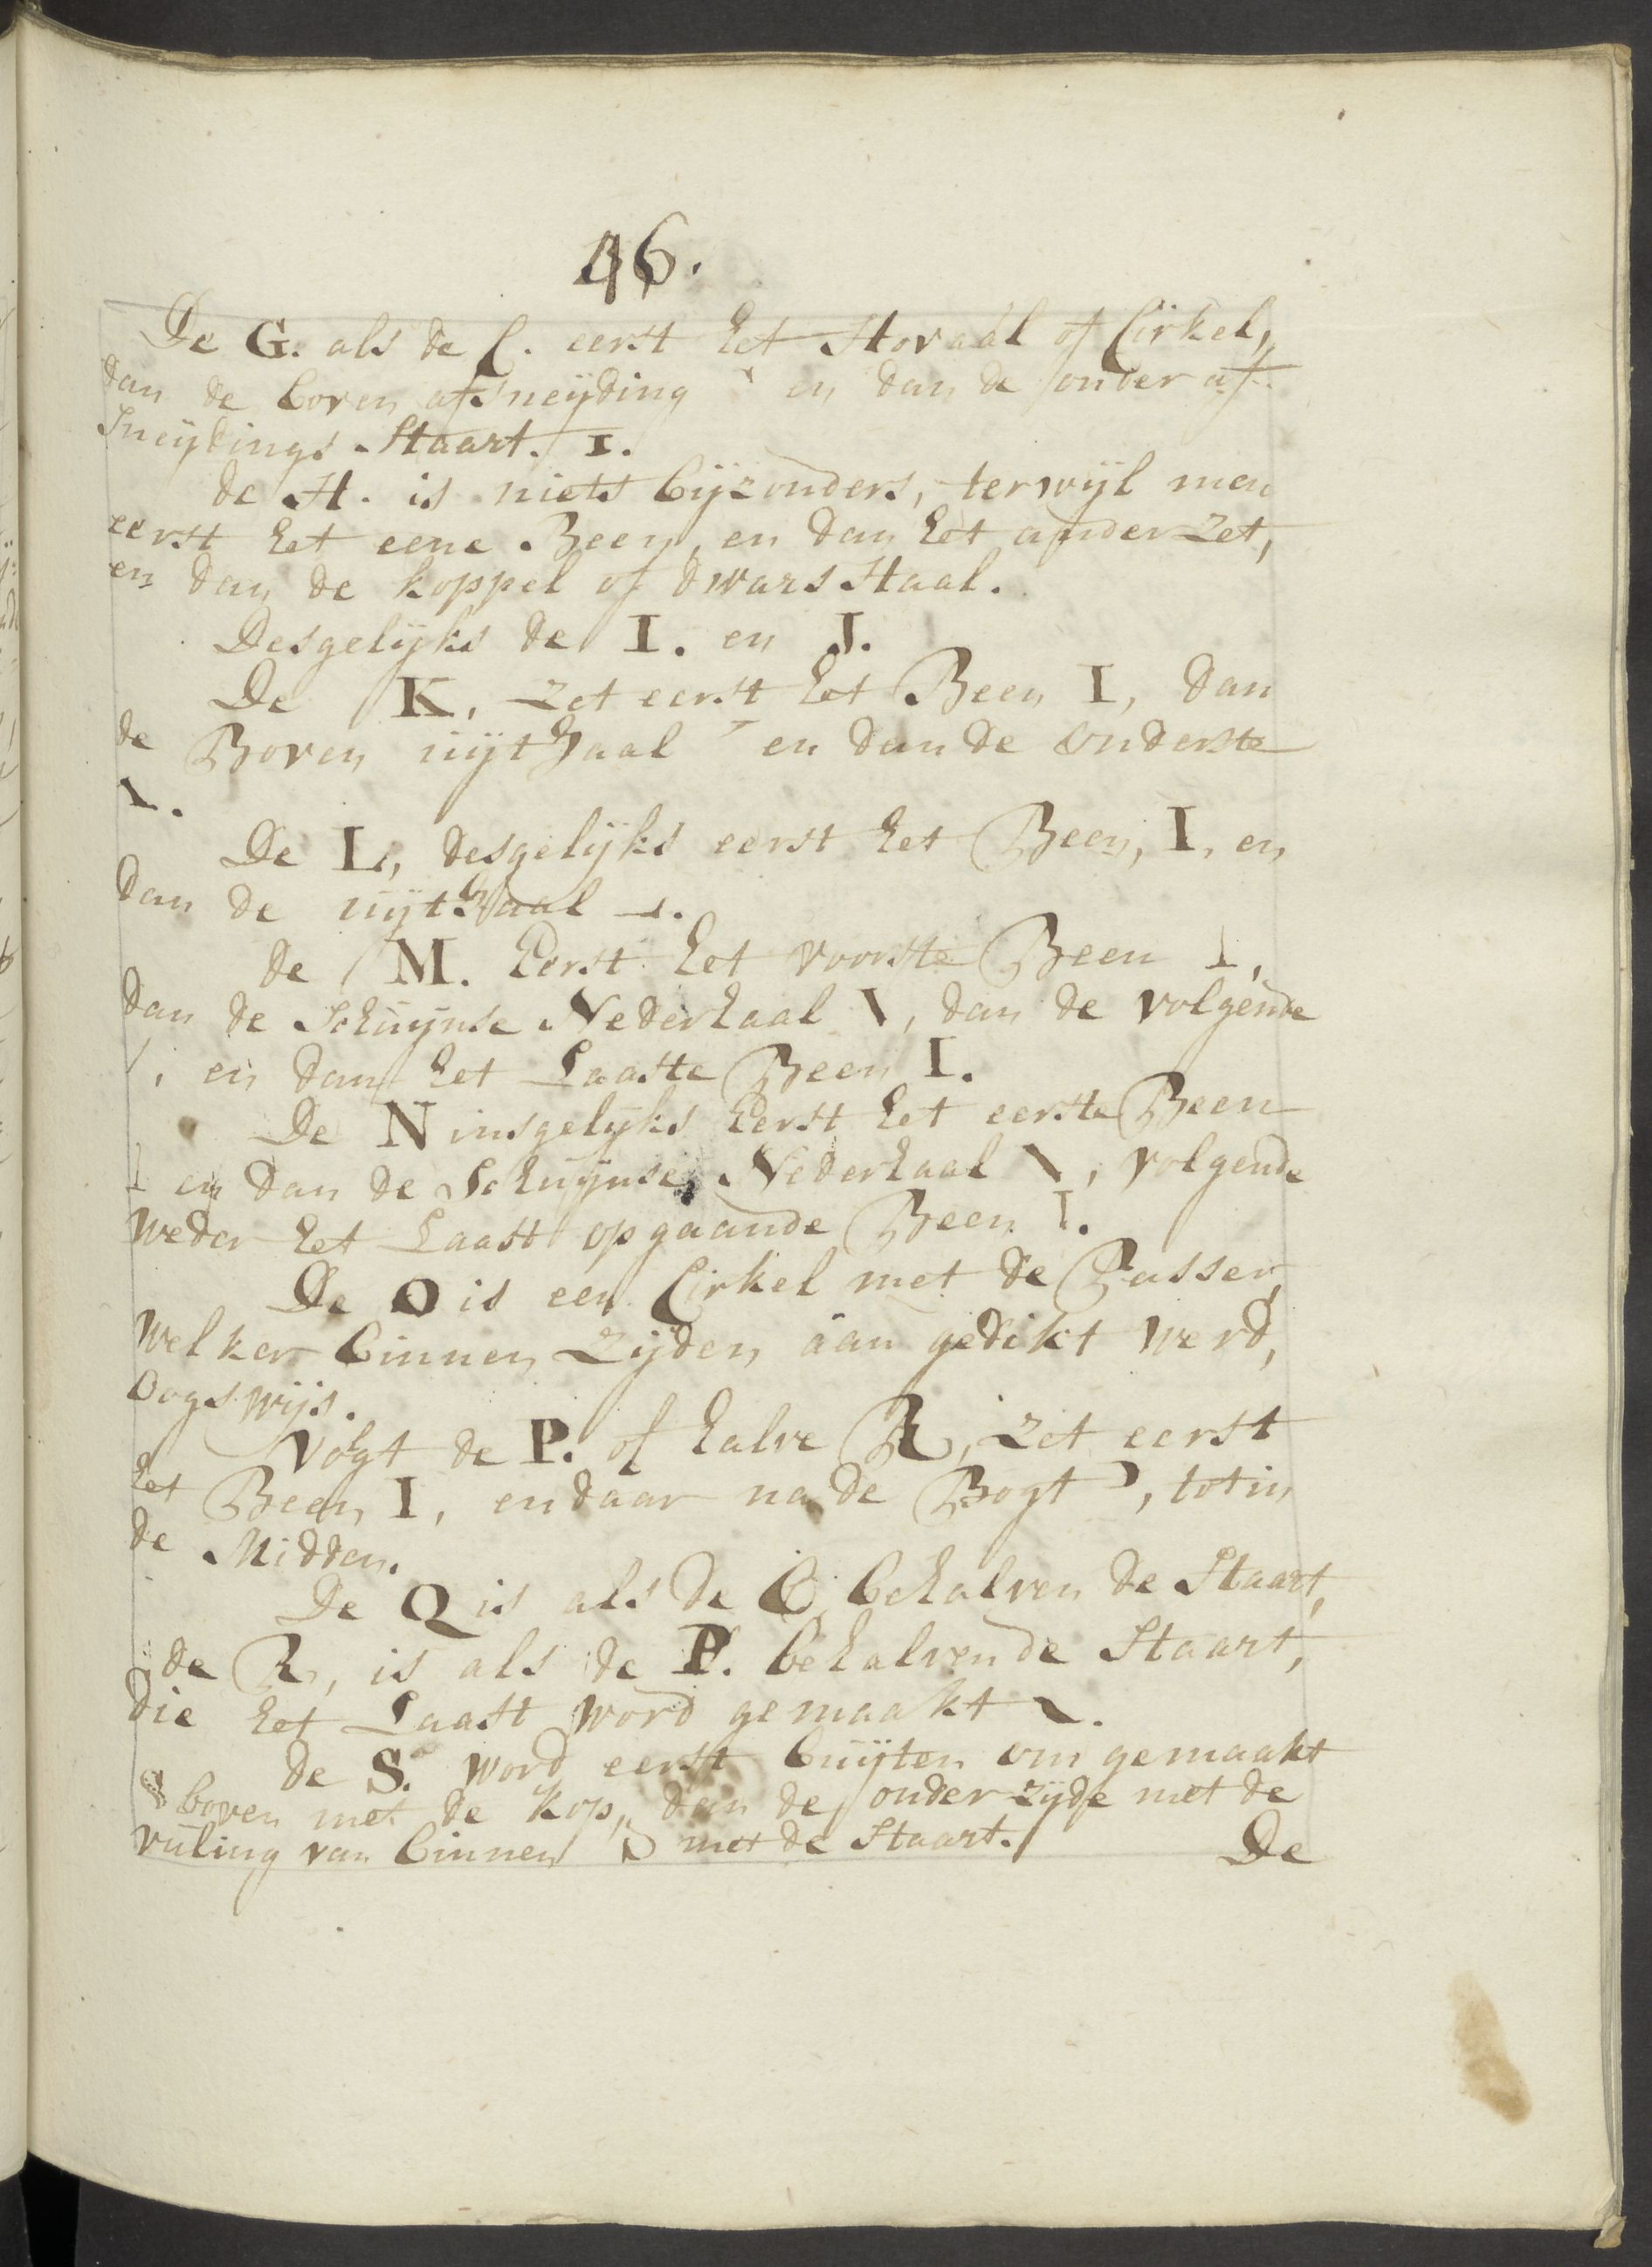 46.
De G. als de C. eerst het Hovaal of Cirkel,
dan de boven afsneijding en dan de onder af-
sneijdings Staart. ɪ.
de H. is niets bijzonders, terwijl men
eerst het eene Been, en dan het ander zet,
en dan de koppel of dwars Haal.
Desgelijks de I. en J.
De K, zet eerst het Been I, dan
de Boven uijthaal en dan de onderste
\.
De L, desgelijks eerst het Been, I, en
dan de uijthaal
de M. Eerst het voorste Been I,
dan de Schuijnse Nederhaal \, dan de volgende
/, en dan het Laaste Been I.
De N insgelijks Eerst het eerste Been
I en dan de Schuijnse Nederhaal \, volgende
weder het Laast opgaande Been I.
De O is een Cirkel met de Passer,
welker binnen Zijden aan gedikt werd,
Oogs wijs.
Volgt de P. of halve R, zet eerst
het Been I, en daar na de Bogt, tot in
de Midden.
De Q is als de O behalven de Staart,
de R, is als de P. behalven de Staart,
die het Laast word gemaakt \.
de S. word eerst buijten om gemaakt
S boven met de kop, dan de onder zijde met de
vuling van binnen S met de Staart.
De